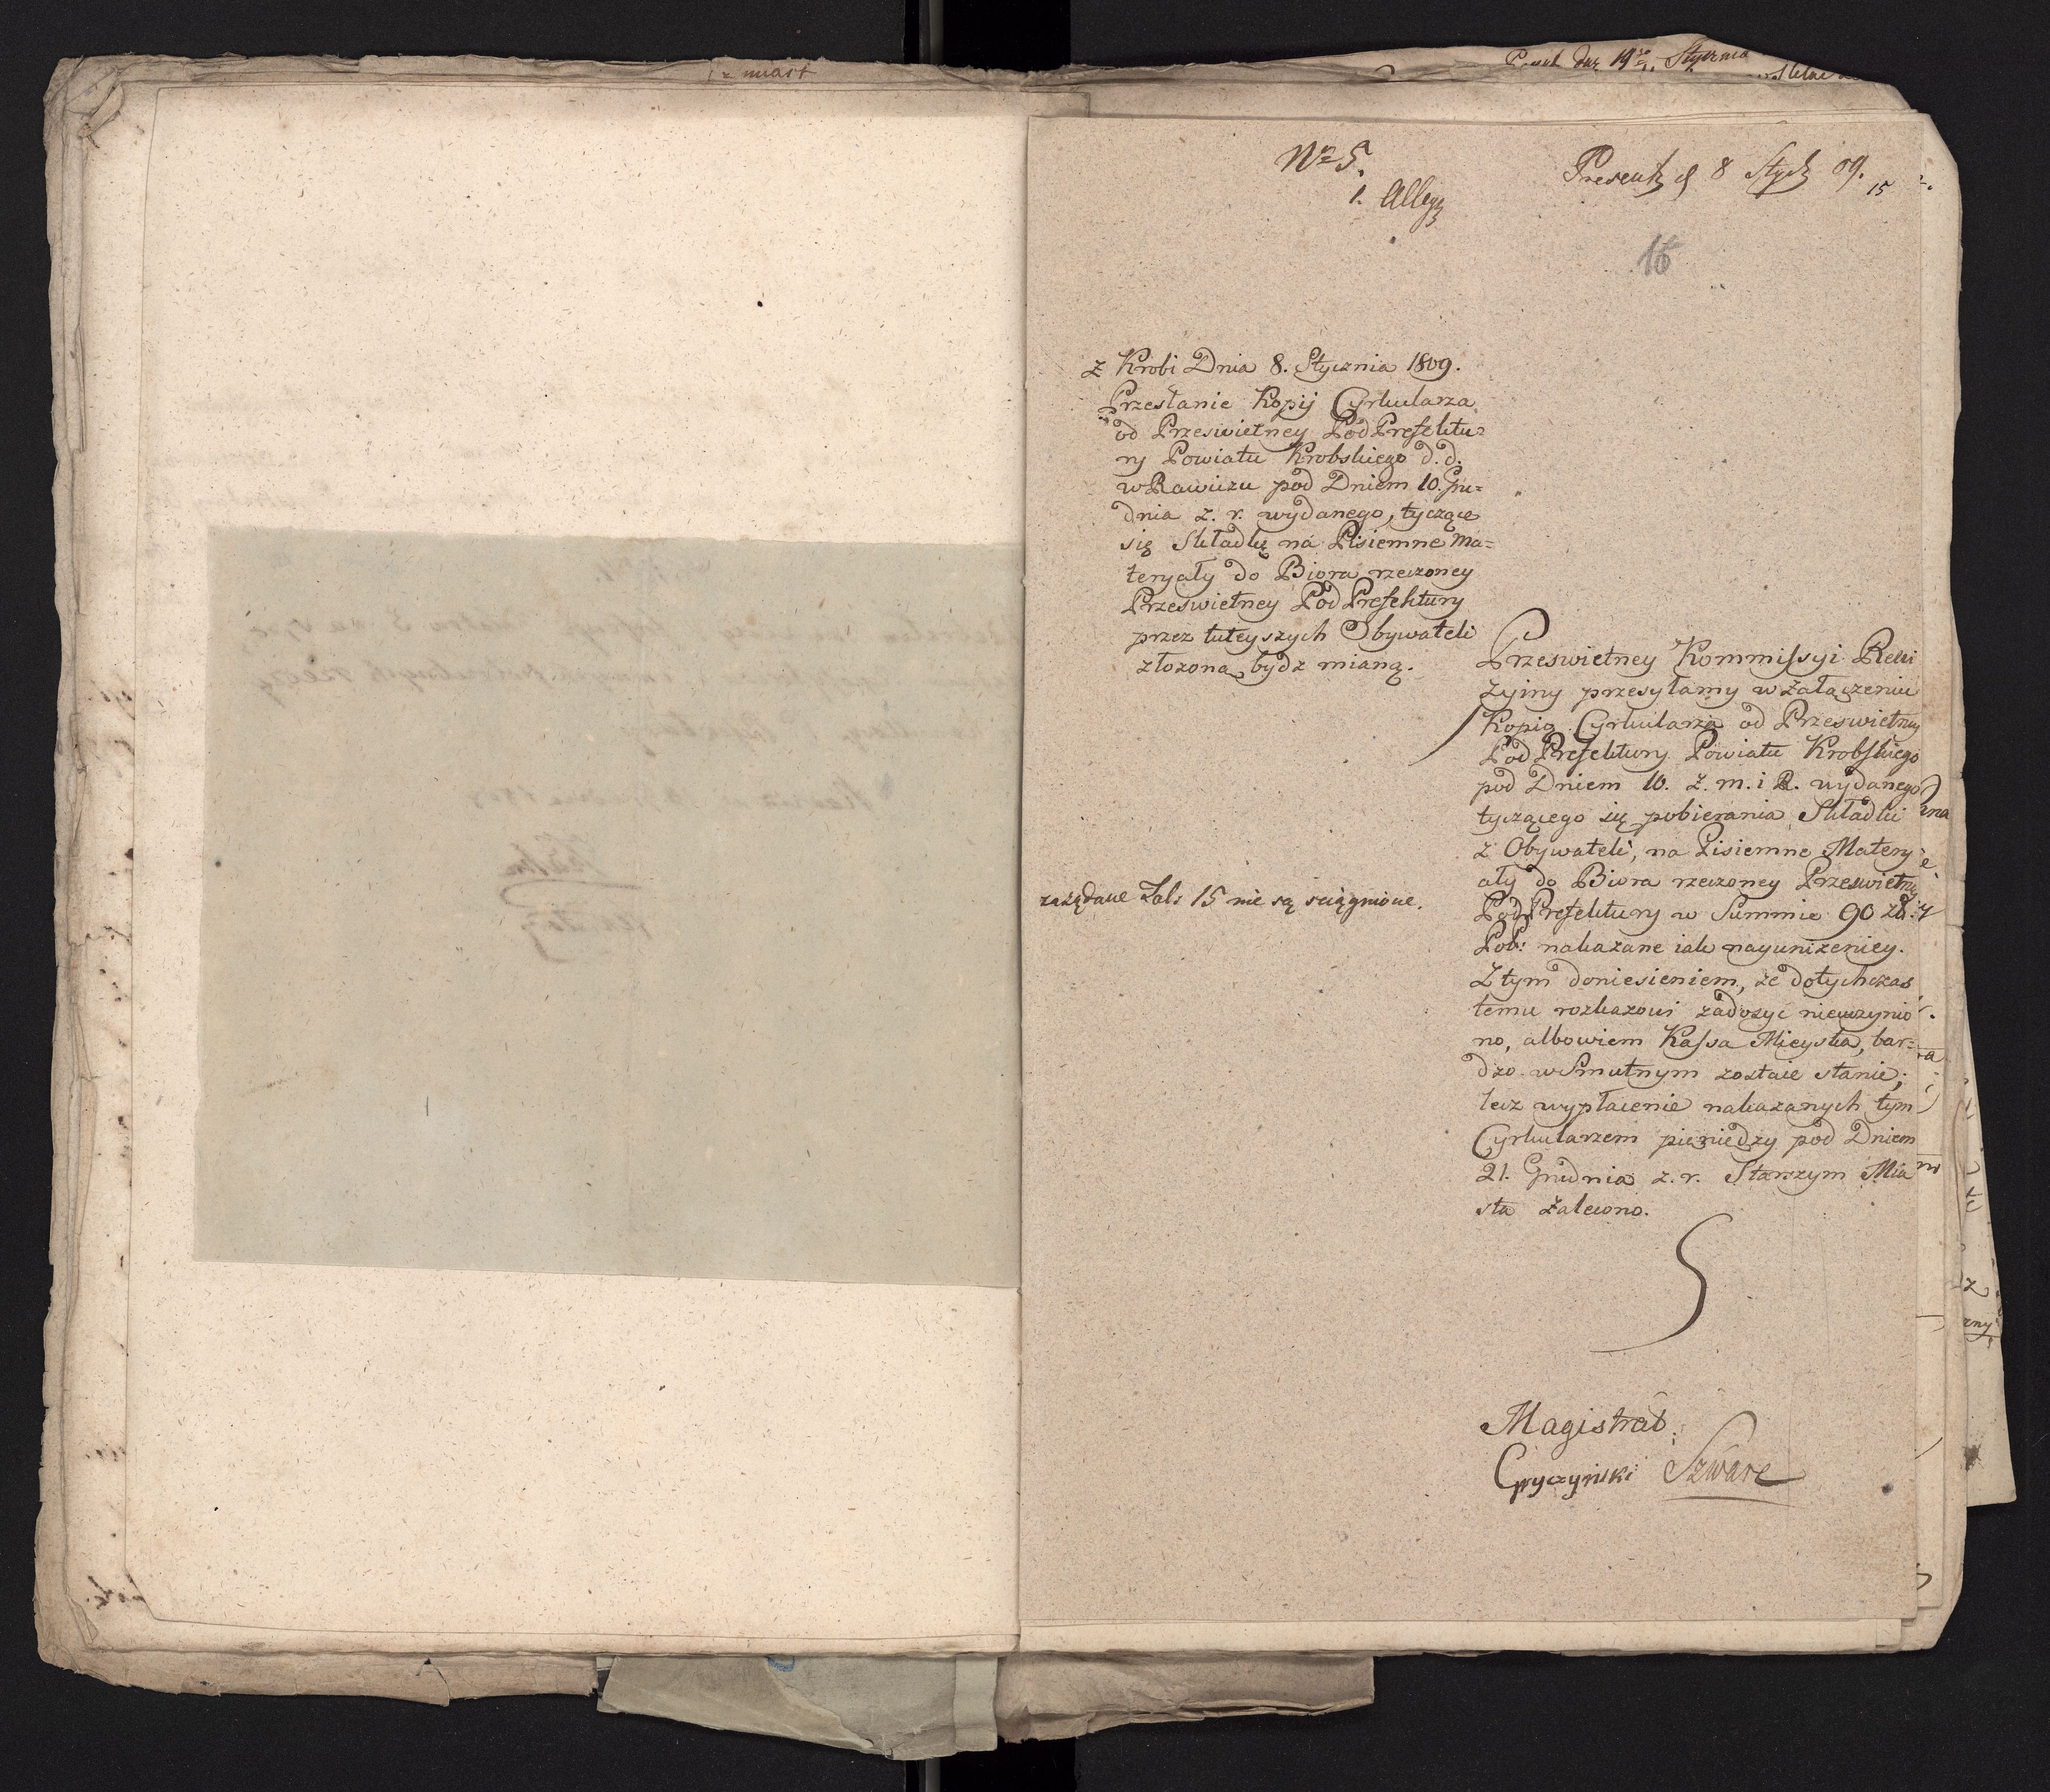 Nro 5.
1. Alleg
Present d 8 Stycz 09.
15
16
z Krobi Dnia 8. Stycznia 1809.
Przesłanie Kopij Cyrkularza
od Przeswietney PodPrefektu=
ry Powiatu Krobskiego d. d.
w Rawiczu pod Dniem 10. Gru=
dnia z. r. wydanego, tyczące
się Składkę na Pisiemne Ma=
teryały do Biora rzeczoney
Przeswietney PodPrefektury
przez tuteyszych Obywateli
złozoną bydz mianą.
Przeswietney Kommissyi Rewi
zyiny przesyłamy w załączeniu
Kopią Cyrkularza od Przeswietney
PodPrefektury Powiatu Krobskiego
pod Dniem 10. z. m. i R. wydanego
tyczącego się pobierania Składki
z Obywateli, na Pisiemne Matery
ały do Biora rzeczoney Przeswietney
PodPrefektury w Summie 90 zł:
Pol: nakazane iak nayunizeniey.
Z tym doniesieniem, że dotychczas
temu rozkazowi zadosyć nieuczynio
no, albowiem Kassa Mieyska, bar=
dzo w Smutnym zostaie stanie;
lecz wypłacenie nakazanych tym
Cyrkularzem pieniędzy pod Dniem
21. Grudnia z. r. Starszym Mia
sta zalecono.
zażądane Tals 15 nie są sciągnione.
Magistrat.
Gryczyński Szwarc